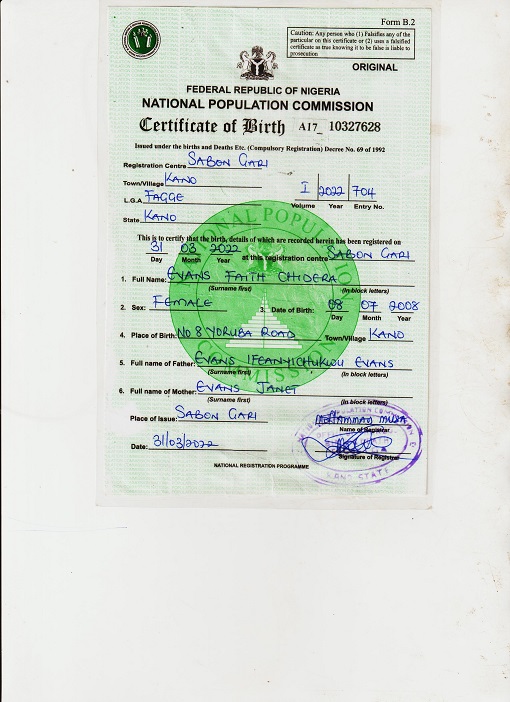 Form B.2
Caution: Any person who (1) Falsifies any of the
particular on this certificate or (2) uses a falsified
certificate as true knowing it to be false is liable to
prosecution
ORIGINAL
FEDERAL REPUBLIC OF NIGERIA
NATIONAL POPULATION COMMISSION
Certificate of Birth A17_ 10327628
Issued under the births and Deaths Etc. (Compulsory Registration) Decree No. 69 of 1992
Registration Centre SABON GARI
Town/Village KANO
I 2022 704
L.G.A FAGGE
Volume Year Entry No.
State KANO
This is to certify that the birth, details of which are recorded herein has been registered on
31 03 2022 at this registration centre SABON GARI
Day Month Year
1. Full Name: EVANS FAITH CHIDERA
(Surname first) (In block letters)
2. Sex: FEMALE 3. Date of Birth: 08 07 2008
Day Month Year
4. Place of Birth: NO 8 YORUBA ROAD Town/Village KANO
5. Full name of Father: EVANS IFEANYICHUKWU EVANS
(Surname first) (In block letters)
6. Full name of Mother: EVANS JANET
(Surname first) (In block letters)
Place of Issue: SABON GARI
MUHAMMAD MUSA
Name of Registrar
Date: 31/03/2022
Signature of Registrar
NATIONAL REGISTRATION PROGRAMME
NATIONAL POPULATION
COMMISSION
KANO STATE